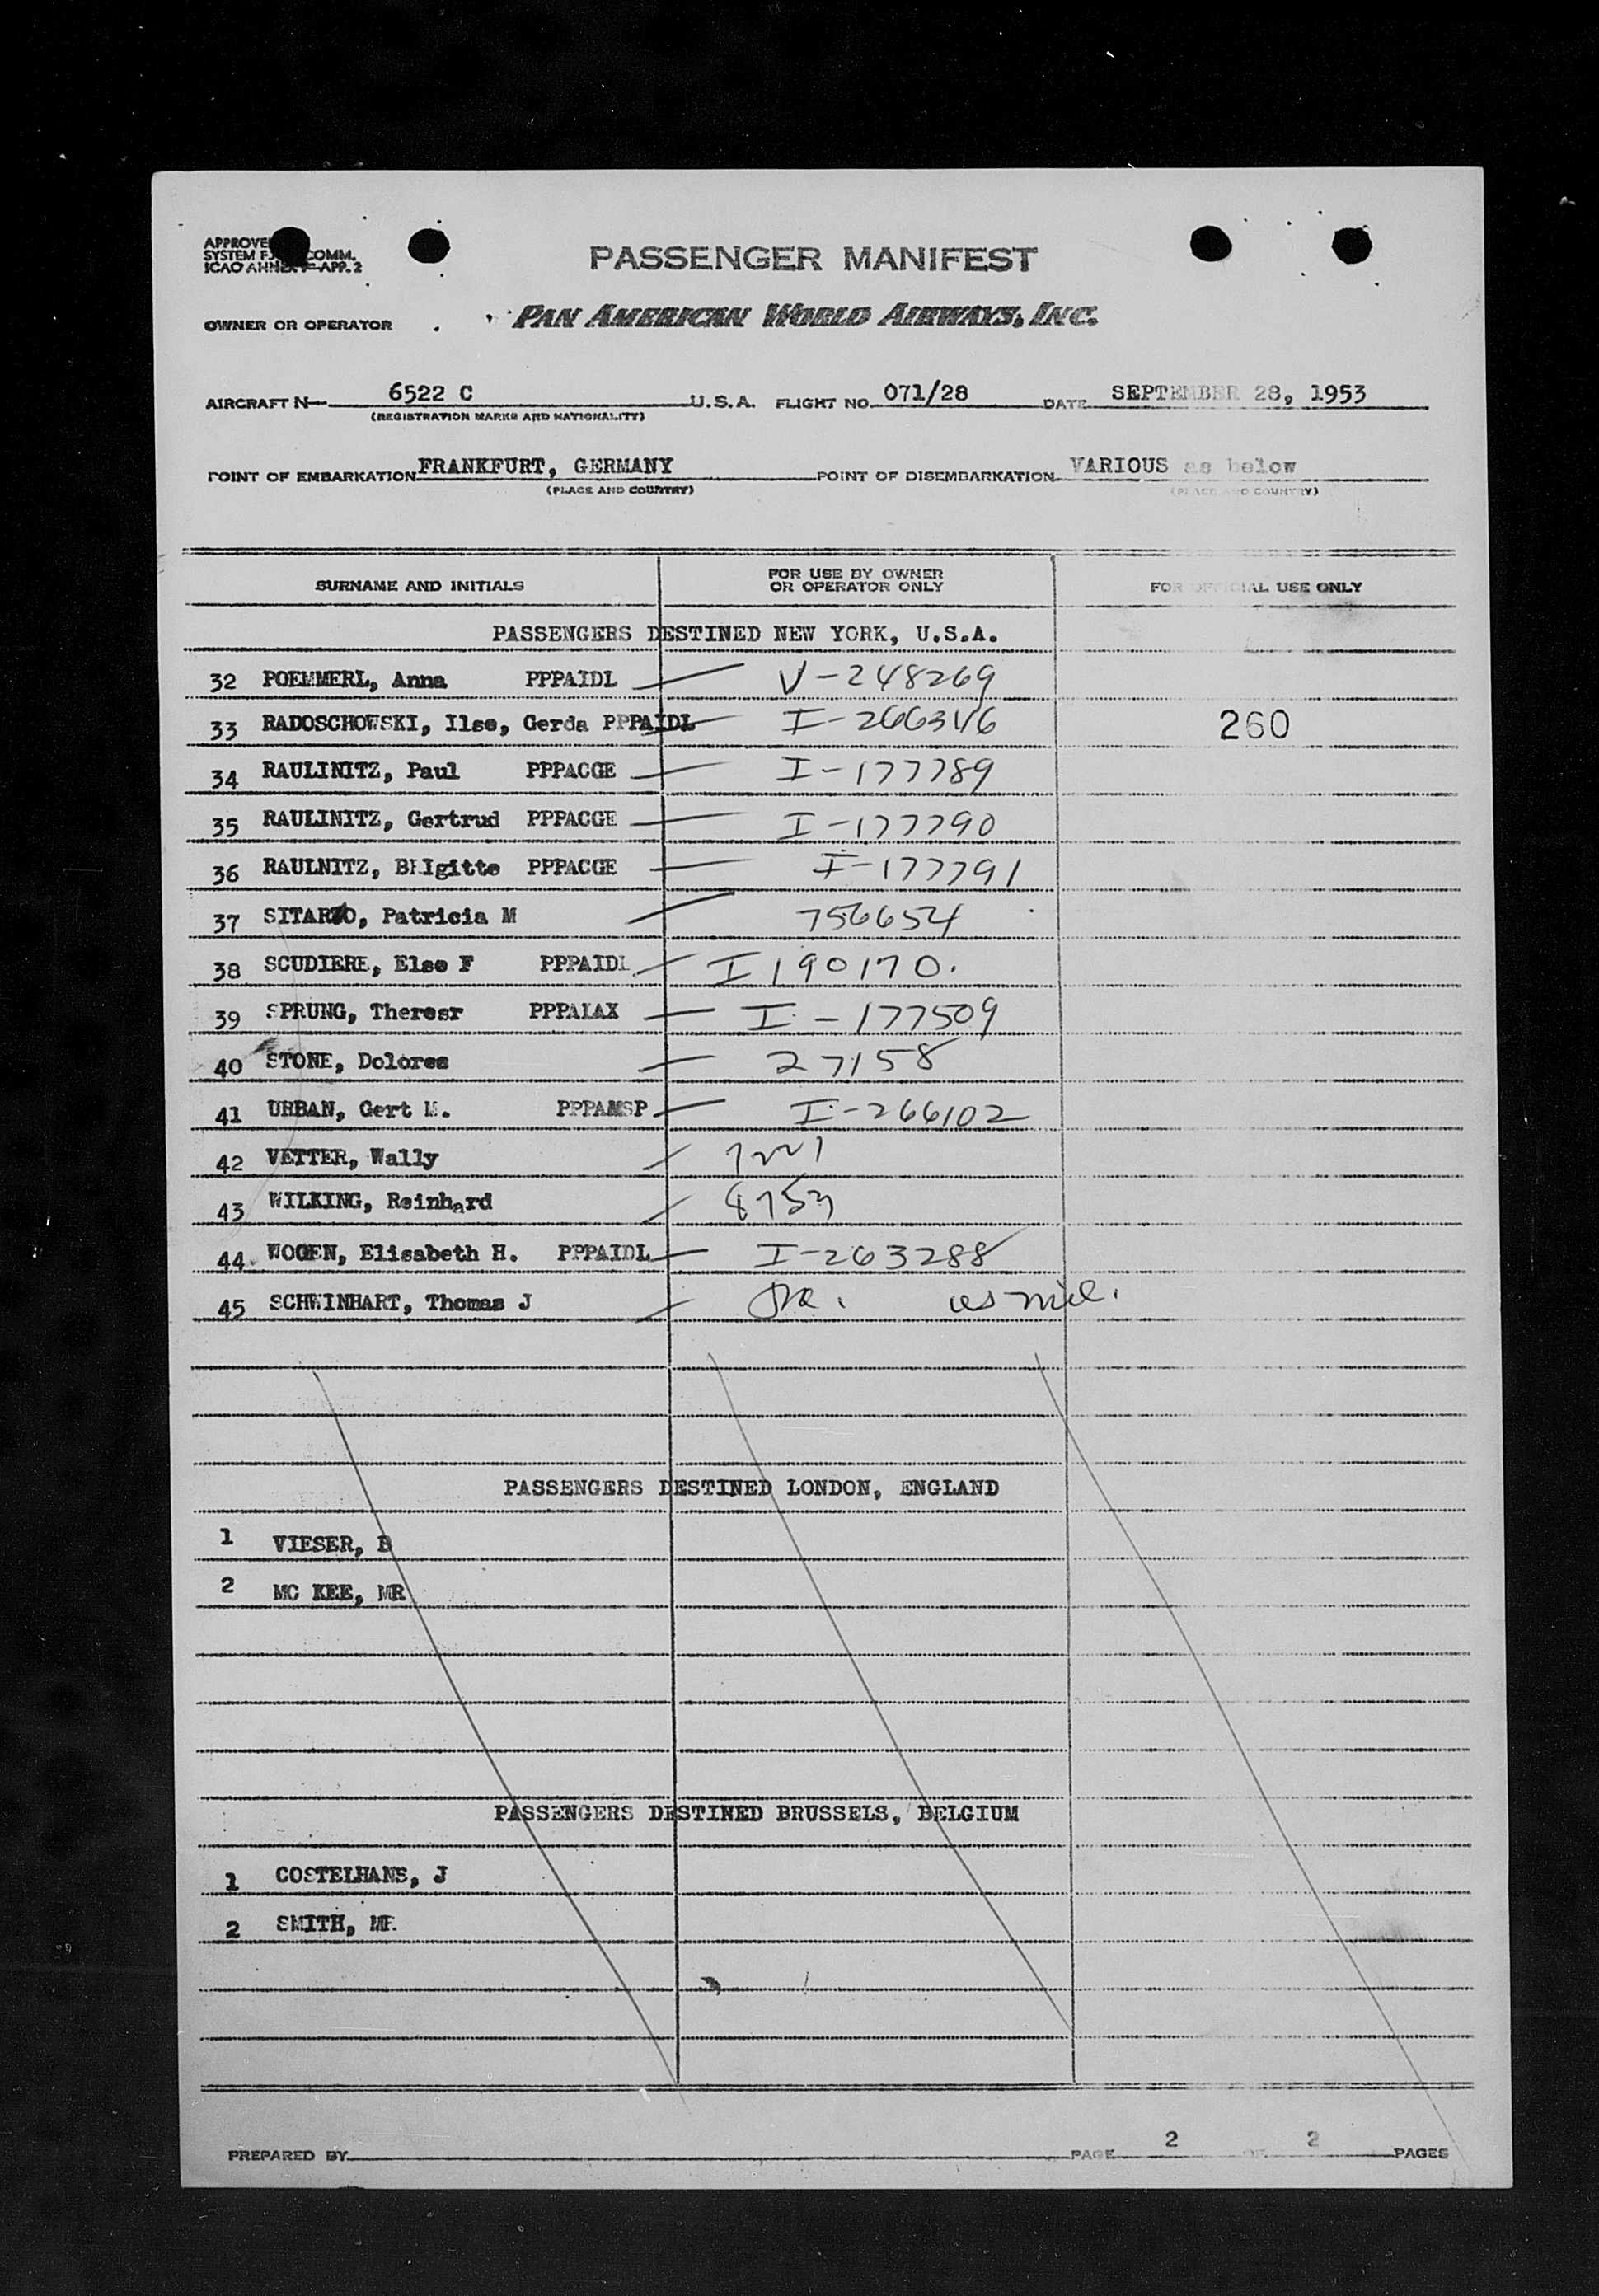 PASSENGER MANIFEST
SYSTEM COMM.
APP. 2
OWNER OR OPERATOR PAN AMERICAN WORLD AIRWAYS, INC.
AIRCRAFT N 6522 C U.S.A. FLIGHT NO. 071/28 DATE SEPTEMBER 28, 1953
(REGISTRATION MARKS AND NATIONALITY)
POINT OF EMBARKATION FRANKFURT, GERMANY POINT OF DISEMBARKATION VARIOUS as below
(PLACE AND COUNTRY) (PLACE AND COUNTRY)
SURNAME AND INITIALS FOR USE BY OWNER OR OPERATOR ONLY FOR OFFICIAL USE ONLY
PASSENGERS DESTINED NEW YORK, U.S.A.
32 POEMMERL, Anna PPPAIDL V-248269
33 RADOSCHOWSKI, Ilse, Gerda PPPAIDL I-266346 260
34 RAULINITZ, Paul PPPACGE I-177789
35 RAULINITZ, Gertrud PPPACGE I-177790
36 RAULNITZ, BRIgitte PPPACGE I-177791
37 Patricia M 756654
38 SCUDIERE, Else F PPPAIDL I 190170.
39 SPRUNG, Theresr PPPAIAX I-177509
40 STONE, Dolores 27158
41 URBAN, Gert M. PPPAMSP I-266102
42 VETTER, Wally
43 WILKING, Reinhard 8753
44 WOGEN, Elisabeth H. PPPAIDL I-263288
45 SCHWINHART, Thomas J
PASSENGERS DESTINED LONDON, ENGLAND
1 VIESER, B
2 MC KEE, MR
PASSENGERS DESTINED BRUSSELS, BELGIUM
1 COSTELHANS, J
2 SMITH, MR
PREPARED BY PAGE 2 OF 2 PAGES